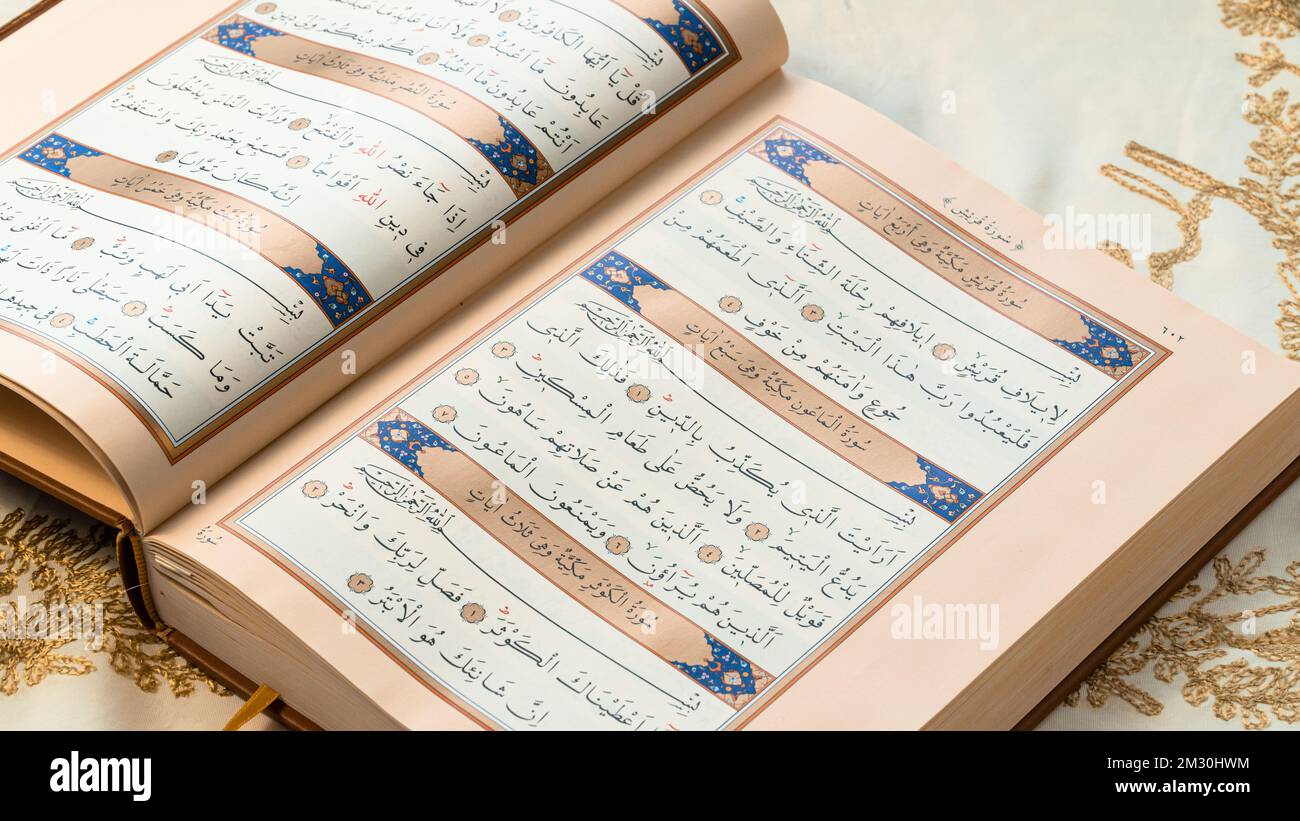 ﴿ سُورَةُ قُرَيْشٍ ﴾
٦٠٢
سُورَةُ قُرَيْشٍ مَكِّيَّةٌ وَهِيَ أَرْبَعُ اٰيَاتٍ
بِسْمِ اللهِ الرَّحْمٰنِ الرَّحِيمِ
لِاِيلَافِ قُرَيْشٍ ١ اِيلَافِهِمْ رِحْلَةَ الشِّتَٓاءِ وَالصَّيْفِ ٢
فَلْيَعْبُدُوا رَبَّ هٰذَا الْبَيْتِ ٣ اَلَّذِٓي اَطْعَمَهُمْ مِنْ
جُوعٍ وَاٰمَنَهُمْ مِنْ خَوْفٍ ٤
سُورَةُ الْمَاعُونِ مَكِّيَّةٌ وَهِيَ سَبْعُ اٰيَاتٍ
بِسْمِ اللهِ الرَّحْمٰنِ الرَّحِيمِ
اَرَاَيْتَ الَّذِي يُكَذِّبُ بِالدِّينِ ١ فَذٰلِكَ الَّذِي
يَدُعُّ الْيَتِيمَ ٢ وَلَا يَحُضُّ عَلٰى طَعَامِ الْمِسْكِينِ ٣
فَوَيْلٌ لِلْمُصَلِّينَ ٤ اَلَّذِينَ هُمْ عَنْ صَلَاتِهِمْ سَاهُونَ ٥
اَلَّذِينَ هُمْ يُرَٓاؤُنَ ٦ وَيَمْنَعُونَ الْمَاعُونَ ٧
سُورَةُ الْكَوْثَرِ مَكِّيَّةٌ وَهِيَ ثَلَاثُ اٰيَاتٍ
بِسْمِ اللهِ الرَّحْمٰنِ الرَّحِيمِ
اَعْطَيْنَاكَ الْكَوْثَرَ ١ فَصَلِّ لِرَبِّكَ وَانْحَرْ ٢
اِنَّ شَانِئَكَ هُوَ الْاَبْتَرُ ٣
سُورَةُ
بِسْمِ
قُلْ يَٓا اَيُّهَا الْكَافِرُونَ ١ لَٓا اَعْبُدُ
عَابِدُونَ مَٓا اَعْبُدُ ٣ وَلَٓا اَنَا عَابِدٌ مَا
اَنْتُمْ عَابِدُونَ مَٓا اَعْبُدُ ٥ لَكُمْ دِينُكُمْ وَلِيَ دِينِ
سُورَةُ النَّصْرِ مَكِّيَّةٌ وَهِيَ ثَلَاثُ اٰيَاتٍ
بِسْمِ اللهِ الرَّحْمٰنِ الرَّحِيمِ
اِذَا جَٓاءَ نَصْرُ اللهِ وَالْفَتْحُ ١ وَرَاَيْتَ النَّاسَ يَدْخُلُونَ
فِي دِينِ اللهِ اَفْوَاجًا ٢ فَسَبِّحْ بِحَمْدِ رَبِّكَ وَاسْتَغْفِرْهُ
اِنَّهُ كَانَ تَوَّابًا ٣
سُورَةُ تَبَّتْ مَكِّيَّةٌ وَهِيَ خَمْسُ اٰيَاتٍ
بِسْمِ اللهِ الرَّحْمٰنِ الرَّحِيمِ
تَبَّتْ يَدَٓا اَبِي لَهَبٍ وَتَبَّ ١ مَٓا اَغْنٰى
وَمَا كَسَبَ ٢ سَيَصْلٰى نَارًا ذَاتَ لَهَبٍ
حَمَّالَةَ الْحَطَبِ ٤ فِي جِيدِهَا
alamy
Image ID: 2M30HWM
www.alamy.com